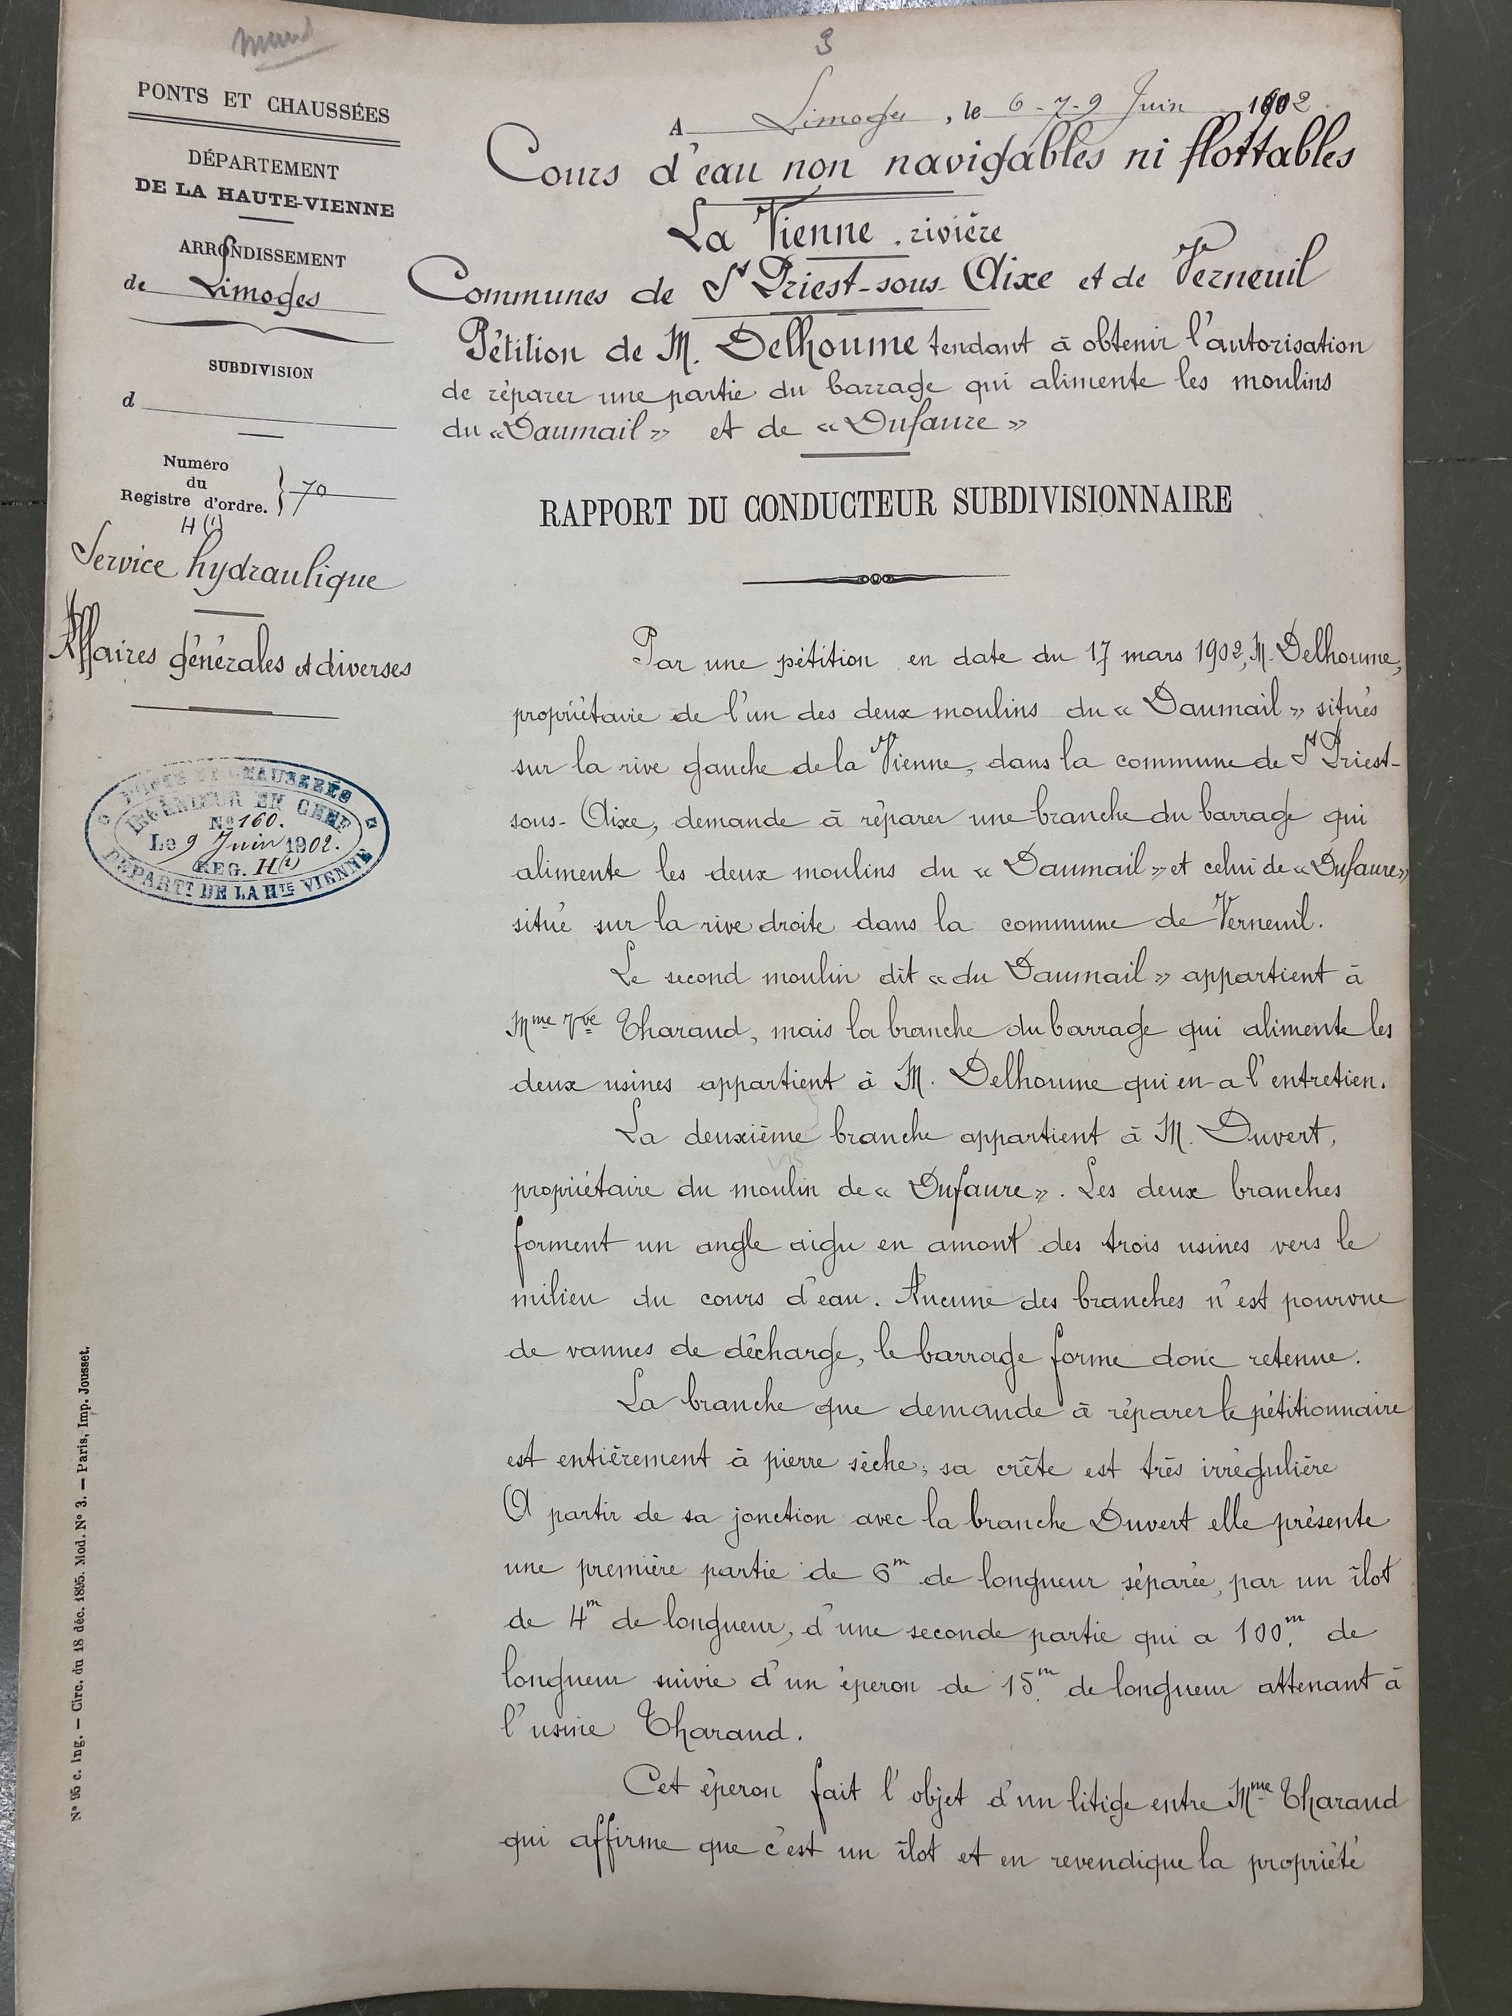 3
PONTS ET CHAUSSÉES
DÉPARTEMENT
DE LA HAUTE-VIENNE
ARRONDISSEMENT
de Limoges
SUBDIVISION
d
Numéro
du
Registre d'ordre. } 70
H (1)
Service hydraulique
Affaires générales et diverses
PONTS ET CHAUSSÉES
INGÉNIEUR EN CHEF
No 160.
Le 9 Juin 1902.
REG. H(1)
DÉPARTT DE LA HTE VIENNE
No 95 c. Ing. — Circ. du 18 déc. 1895. Mod. No 3. — Paris, Imp. Jousset.
A Limoges, le 6-7-9 Juin 1902
Cours d'eau non navigables ni flottables
La Vienne. rivière
Communes de St Priest-sous-Aixe et de Verneuil
Pétition de M. Delhoume tendant à obtenir l'autorisation
de réparer une partie du barrage qui alimente les moulins
du «Daumail» et de «Dufaure»
RAPPORT DU CONDUCTEUR SUBDIVISIONNAIRE
Par une pétition en date du 17 mars 1902, M. Delhoume,
propriétaire de l'un des deux moulins du «Daumail» situés
sur la rive gauche de la Vienne, dans la commune de St Priest-
sous-Aixe, demande à réparer une branche du barrage qui
alimente les deux moulins du «Daumail» et celui de «Dufaure»
situé sur la rive droite dans la commune de Verneuil.
Le second moulin dit «du Daumail» appartient à
Mme Vve Tharaud, mais la branche du barrage qui alimente les
deux usines appartient à M. Delhoume qui en a l'entretien.
La deuxième branche appartient à M. Duvert,
propriétaire du moulin de «Dufaure». Les deux branches
forment un angle aigu en amont des trois usines vers le
milieu du cours d'eau. Aucune des branches n'est pourvue
de vannes de décharge, le barrage forme donc retenue.
La branche que demande à réparer le pétitionnaire
est entièrement à pierre sèche; sa crête est très irrégulière
A partir de sa jonction avec la branche Duvert elle présente
une première partie de 6m de longueur séparée, par un îlot
de 4m de longueur, d'une seconde partie qui a 100m. de
longueur suivie d'un éperon de 15m. de longueur attenant à
l'usine Tharaud.
Cet éperon fait l'objet d'un litige entre Mme Tharaud
qui affirme que c'est un îlot et en revendique la propriété